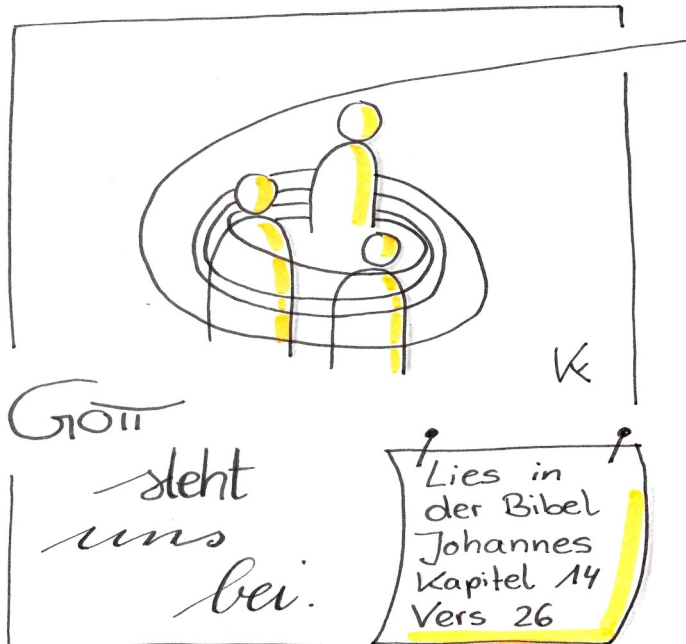 GOTT
steht
uns
bei.
Lies in
der Bibel
Johannes
Kapitel 14
Vers 26